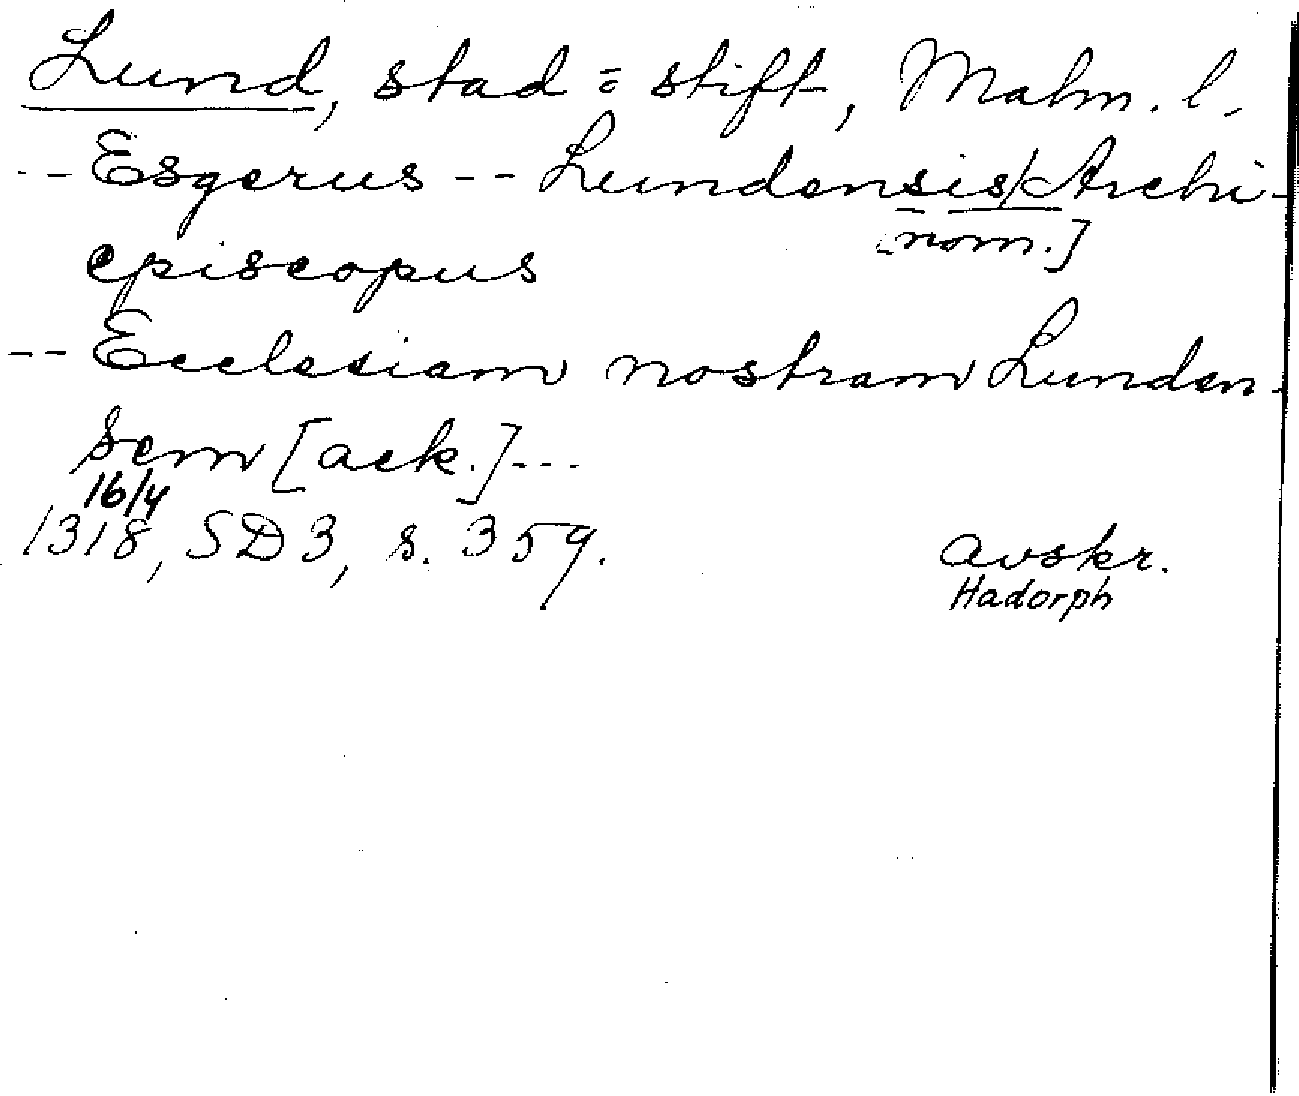 Lund, stad o stift, Malm. l.
-- Esgerus -- Lundensis/Archi-
[nom.]
episcopus
-- Ecclesiam nostram Lunden-
sem [ack.] ---
16/4
1318, SD 3, s. 359.
avskr.
Hadorph